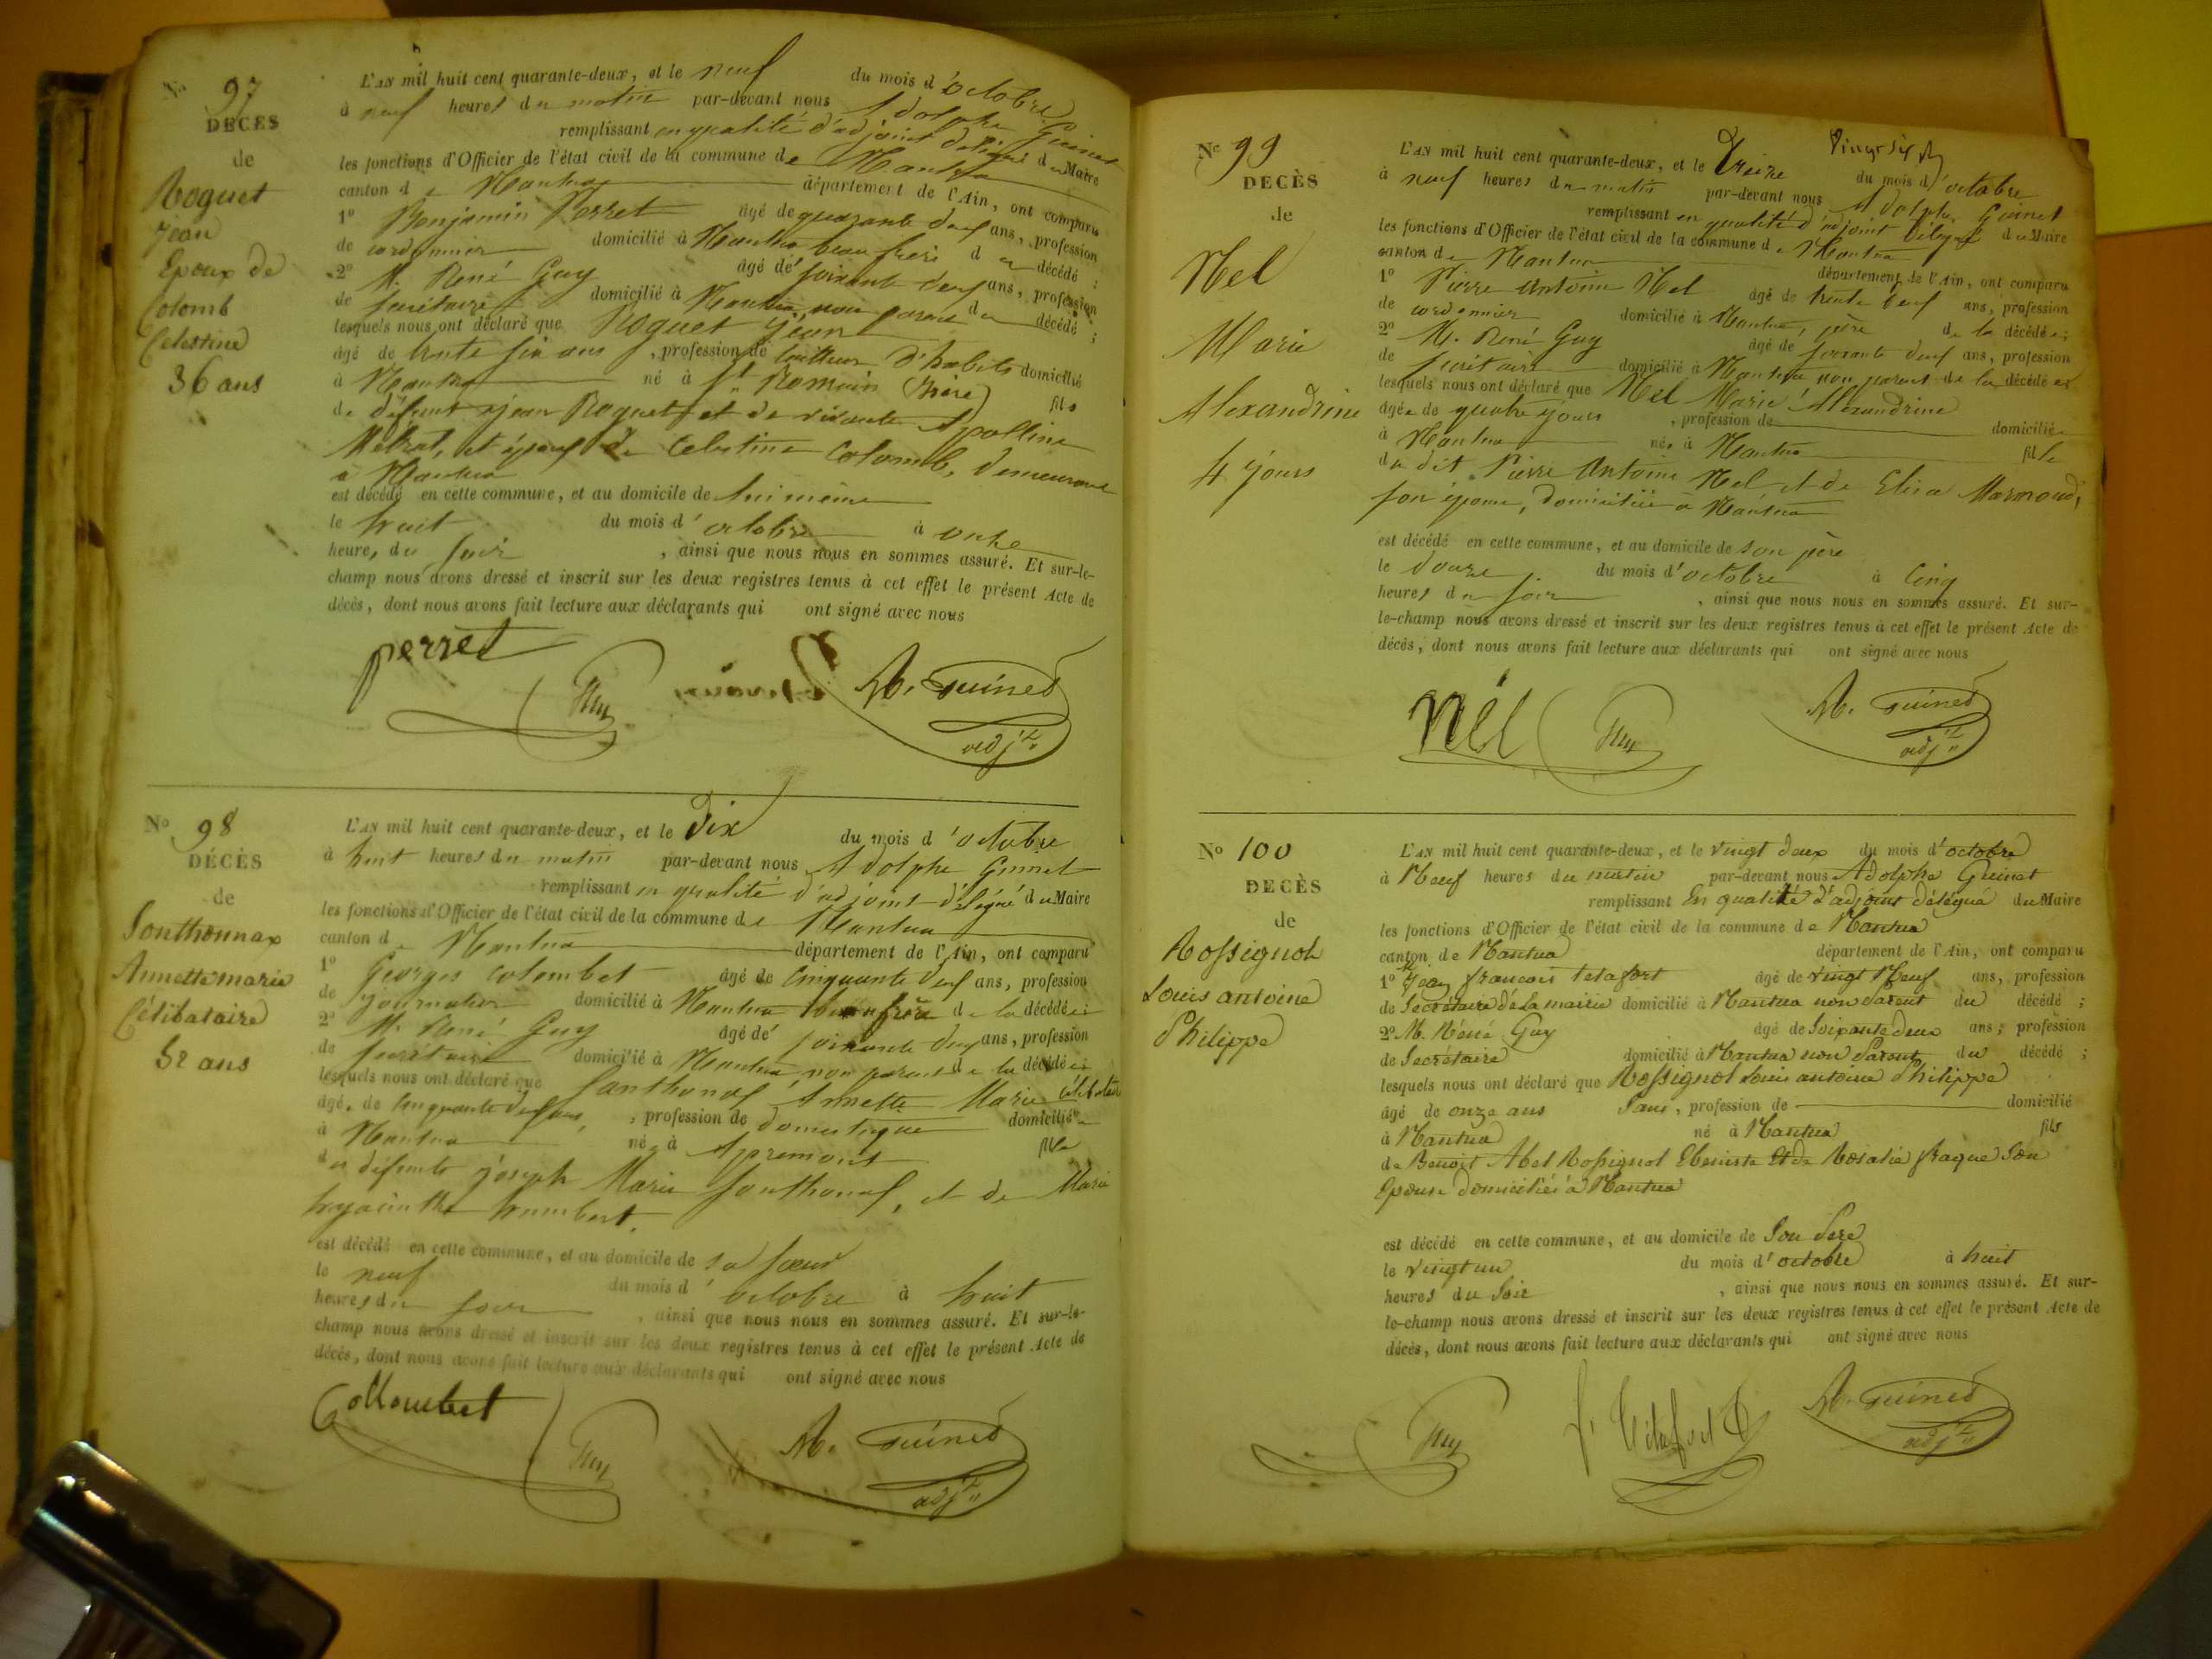 N° 97
DECES
de
Roguet
Jean
Epoux de
Colomb
Celestine
36 ans
L'AN mil huit cent quarante-deux, et le neuf du mois d'octobre
à neuf heures du matin par-devant nous Adolphe Guinet
remplissant en qualité d'adjoint délégué du Maire
les fonctions d'Officier de l'état civil de la commune de Nantua
canton de Nantua département de l'Ain, ont comparu
1° Benjamin Perret âgé de quarante deux ans, profession
de cordonnier domicilié à Nantua beau frère du décédé ;
2° M. René Guy âgé de soixante deux ans, profession
de secrétaire domicilié à Nantua non parent du décédé ;
lesquels nous ont déclaré que Roguet Jean
âgé de trente six ans, profession de tailleur d'habits domicilié
à Nantua né à St Romain (Isère) fils
de défunt Jean Roguet et de vivante Apolline
Metral, et époux de Celestine Colomb, demeurant
à Nantua
est décédé en cette commune, et au domicile de lui même
le huit du mois d'octobre à onze
heures du soir, ainsi que nous nous en sommes assuré. Et sur-le-
champ nous avons dressé et inscrit sur les deux registres tenus à cet effet le présent Acte de
décès, dont nous avons fait lecture aux déclarants qui ont signé avec nous
perret Guy A. Guinet
adjt
N° 98
DÉCÈS
de
Sonthonnax
Annette marie
Célibataire
52 ans
L'AN mil huit cent quarante-deux, et le Dix du mois d'octobre
à huit heures du matin par-devant nous Adolphe Guinet
remplissant en qualité d'adjoint délégué du Maire
les fonctions d'Officier de l'état civil de la commune de Nantua
canton de Nantua département de l'Ain, ont comparu
1° Georges Colombet âgé de cinquante deux ans, profession
de journalier domicilié à Nantua beau frère de la décédée ;
2° M. René Guy âgé de soixante deux ans, profession
de secrétaire domicilié à Nantua non parent de la décédée ;
lesquels nous ont déclaré que Santhonax Annette Marie célibataire
âgée de cinquante deux ans, profession de domestique domiciliée
à Nantua née à Apremont fille
de défunts joseph Marie Sonthonax, et de Marie
hyacinthe humbert.
est décédé en cette commune, et au domicile de sa sœur
le neuf du mois d'octobre à huit
heures du soir, ainsi que nous nous en sommes assuré. Et sur-le-
champ nous avons dressé et inscrit sur les deux registres tenus à cet effet le présent Acte de
décès, dont nous avons fait lecture aux déclarants qui ont signé avec nous
Collombet Guy A. Guinet
adjt
N° 99
DECÈS
de
Nel
Marie
Alexandrine
4 jours
L'AN mil huit cent quarante-deux, et le Treize du mois d'octobre
à neuf heures du matin par-devant nous Adolphe Guinet
remplissant en qualité d'adjoint délégué du Maire
les fonctions d'Officier de l'état civil de la commune de Nantua
canton de Nantua département de l'Ain, ont comparu
1° Pierre Antoine Nel âgé de trente neuf ans, profession
de cordonnier domicilié à Nantua, père de la décédée ;
2° M. René Guy âgé de soixante deux ans, profession
de secrétaire domicilié à Nantua non parent de la décédée
lesquels nous ont déclaré que Nel Marie Alexandrine
âgée de quatre jours, profession de domiciliée
à Nantua née à Nantua fille
du dit Pierre Antoine Nel et de Elisa Marmoud,
son épouse, domiciliés à Nantua
est décédé en cette commune, et au domicile de son père
le douze du mois d'octobre à cinq
heures du soir, ainsi que nous nous en sommes assuré. Et sur-
le-champ nous avons dressé et inscrit sur les deux registres tenus à cet effet le présent Acte de
décès, dont nous avons fait lecture aux déclarants qui ont signé avec nous
Nel Guy A. Guinet
adjt
N° 100
DECÈS
de
Rossignol
Louis antoine
Philippe
L'AN mil huit cent quarante-deux, et le vingt deux du mois d'octobre
à Neuf heures du matin par-devant nous Adolphe Guinet
remplissant En qualité d'adjoint délégué du Maire
les fonctions d'Officier de l'état civil de la commune de Nantua
canton de Nantua département de l'Ain, ont comparu
1° Jean francois telafort âgé de vingt Neuf ans, profession
de Secrétaire de la mairie domicilié à Nantua non Parent du décédé ;
2° M. Réné Guy âgé de Soixante deux ans, profession
de Secrétaire domicilié à Nantua non Parent du décédé ;
lesquels nous ont déclaré que Rossignol Louis antoine Philippe
âgé de onze ans Sans, profession de domicilié
à Nantua né à Nantua fils
de Benoit Abel Rossignol Ebeniste Et de Rosalie fraque Son
Epouse domiciliés à Nantua
est décédé en cette commune, et au domicile de Son Pere
le vingt un du mois d'octobre à huit
heures du Soir, ainsi que nous nous en sommes assuré. Et sur-
le-champ nous avons dressé et inscrit sur les deux registres tenus à cet effet le présent Acte de
décès, dont nous avons fait lecture aux déclarants qui ont signé avec nous
Guy f. Télafort A. Guinet
adjt